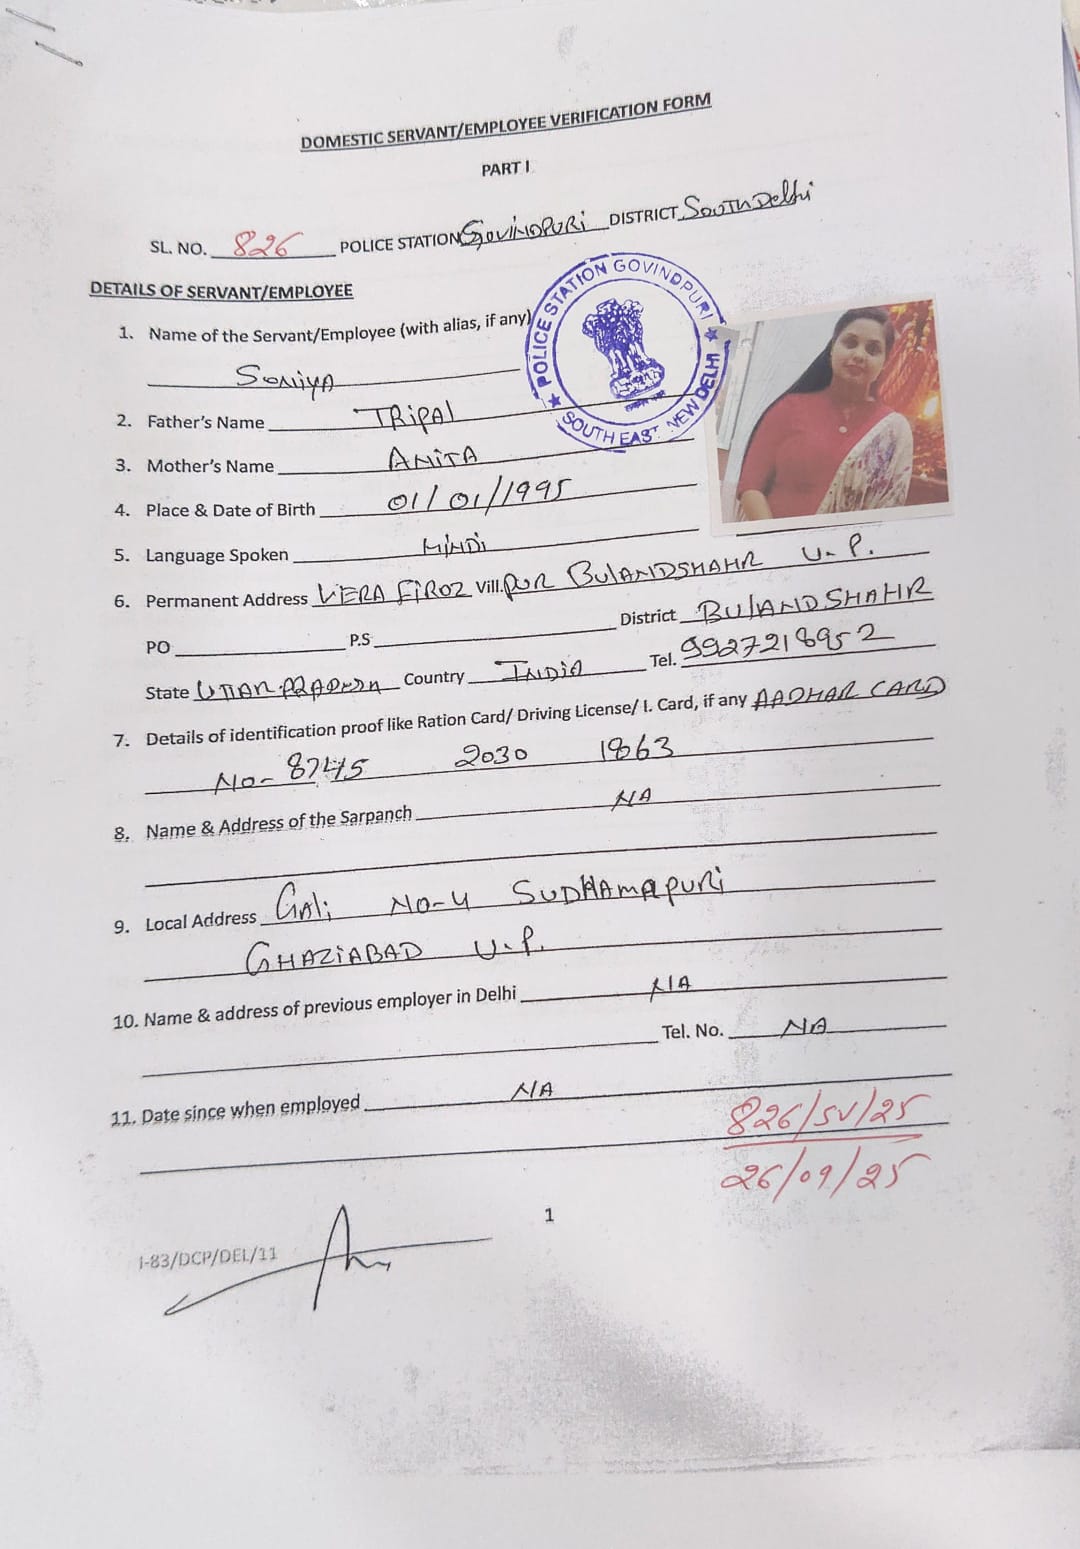 DOMESTIC SERVANT/EMPLOYEE VERIFICATION FORM
PART I
SL. NO. 826 POLICE STATION GOVINDPURI DISTRICT SOUTH Delhi
DETAILS OF SERVANT/EMPLOYEE
POLICE STATION GOVINDPURI
SOUTH EAST NEW DELHI
1. Name of the Servant/Employee (with alias, if any)
SONiYA
2. Father's Name TRiPAl
3. Mother's Name ANiTA
4. Place & Date of Birth 01/01/1995
5. Language Spoken HiNDi
6. Permanent Address VERA FiROZ Vill. PUR BulANDSHAHR U.P.
PO P.S District BUlAND SHAHR
State UTTAR PRADESH Country INDiA Tel. 9927218952
7. Details of identification proof like Ration Card/ Driving License/ I. Card, if any AADHAR CARD
No- 8745 2030 1863
8. Name & Address of the Sarpanch NA
9. Local Address GAli NO-4 SUDHAMAPURi
GHAZiABAD U.P.
10. Name & address of previous employer in Delhi N/A
Tel. No. NA
11. Date since when employed N/A
826/SV/25
26/09/25
1
I-83/DCP/DEL/11